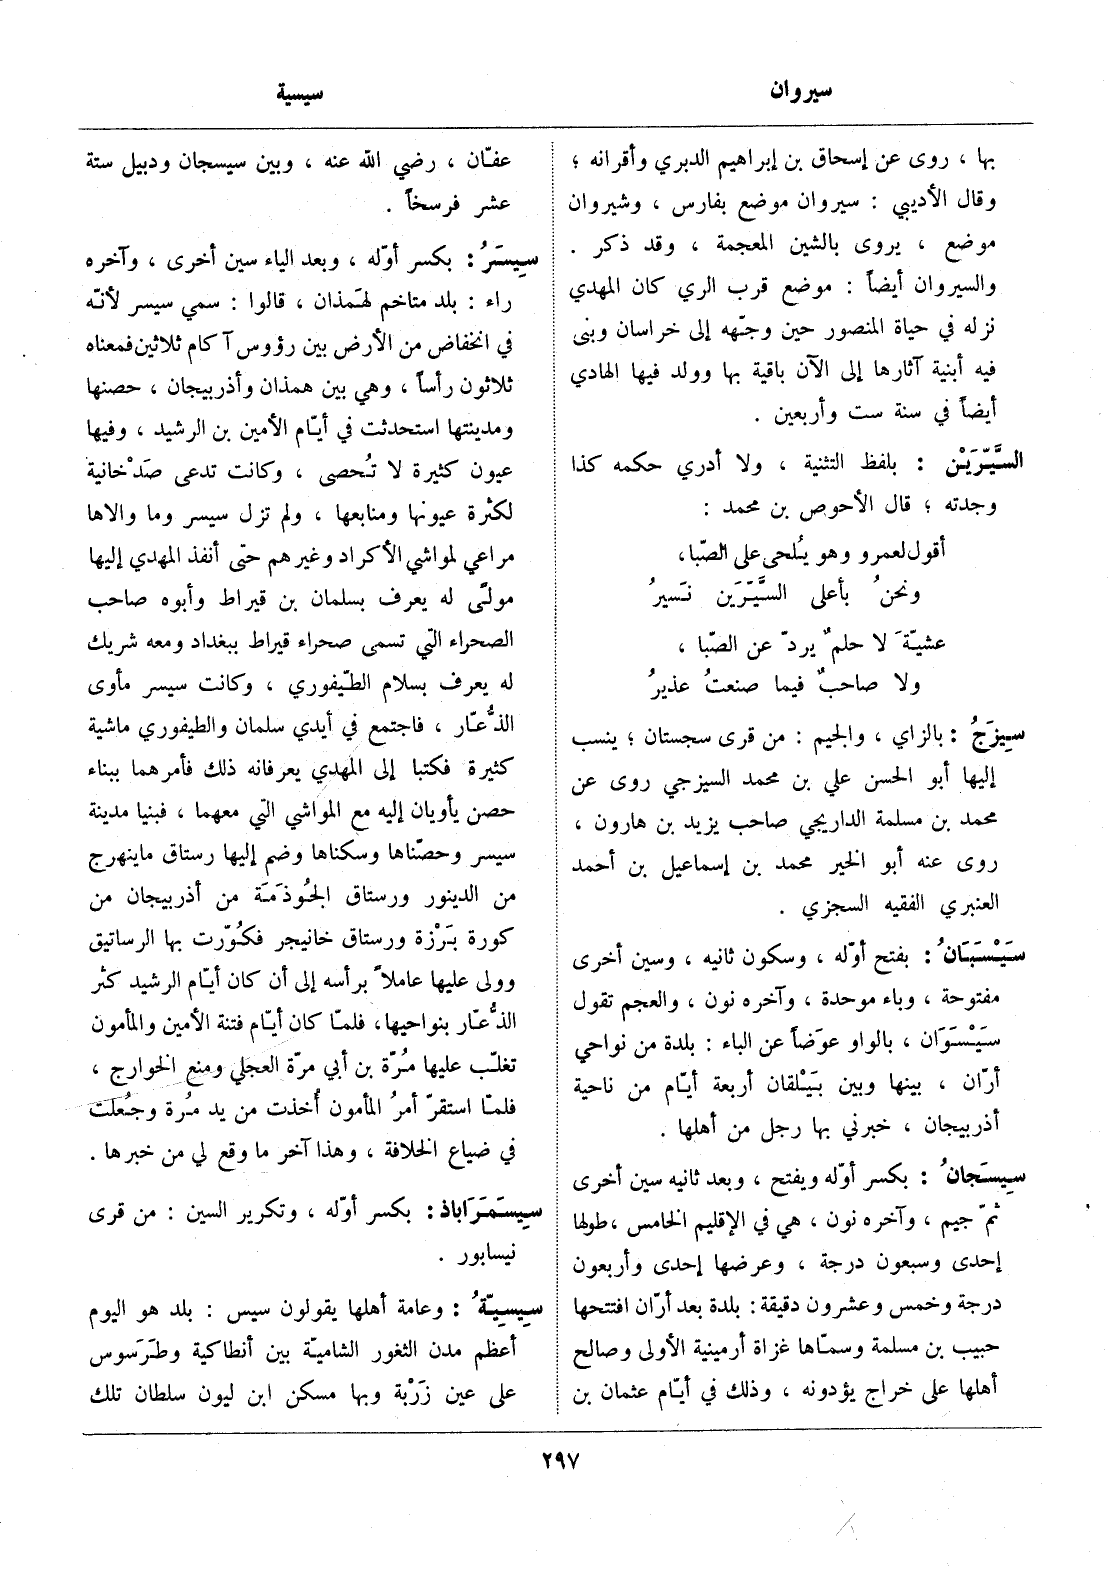 سيروان
سيسية
بها ، روى عن إسحاق بن إبراهيم الدبري وأقرانه ؛
وقال الأديبي : سيروان موضع بفارس ، وشيروان
موضع ، يروى بالشين المعجمة ، وقد ذكر .
والسيروان أيضاً : موضع قرب الري كان المهدي
نزله في حياة المنصور حين وجّهه إلى خراسان وبنى
فيه أبنية آثارها إلى الآن باقية بها وولد فيها الهادي
أيضاً في سنة ست وأربعين .
السَّيَّرَيْن : بلفظ التثنية ، ولا أدري حكمه كذا
وجدته ؛ قال الأحوص بن محمد :
أقول لعمرو وهو يُلحى على الصّبا،
ونحنُ بأعلى السَّيَّرَين نَسيرُ
عشيّةَ لا حلمٌ يردّ عن الصّبا ،
ولا صاحبٌ فيما صنعتُ عذيرُ
سِيزَجُ : بالزاي ، والجيم : من قرى سجستان ؛ ينسب
إليها أبو الحسن علي بن محمد السيزجي روى عن
محمد بن مسلمة الداريجي صاحب يزيد بن هارون ،
روى عنه أبو الخير محمد بن إسماعيل بن أحمد
العنبري الفقيه السجزي .
سَيْسَبَانُ : بفتح أوّله ، وسكون ثانيه ، وسين أخرى
مفتوحة ، وباء موحدة ، وآخره نون ، والعجم تقول
سَيْسَوَان ، بالواو عوَضاً عن الباء : بلدة من نواحي
أرّان ، بينها وبين بَيْلقان أربعة أيّام من ناحية
أذربيجان ، خبرني بها رجل من أهلها .
سِيسَجانُ : بكسر أوّله ويفتح ، وبعد ثانيه سين أخرى
ثمّ جيم ، وآخره نون ، هي في الإقليم الخامس ، طولها
إحدى وسبعون درجة ، وعرضها إحدى وأربعون
درجة وخمس وعشرون دقيقة : بلدة بعد أرّان افتتحها
حبيب بن مسلمة وسمّاها غزاة أرمينية الأولى وصالح
أهلها على خراج يؤدونه ، وذلك في أيّام عثمان بن
عفّان ، رضي الله عنه ، وبين سيسجان ودبيل ستة
عشر فرسخاً .
سِيسَرُ : بكسر أوّله ، وبعد الياء سين أخرى ، وآخره
راء : بلد متاخم لهَمذان ، قالوا : سمي سيسر لأنّه
في انخفاض من الأرض بين رؤوس آكام ثلاثين فمعناه
ثلاثون رأساً ، وهي بين همذان وأذربيجان ، حصنها
ومدينتها استحدثت في أيّام الأمين بن الرشيد ، وفيها
عيون كثيرة لا تُحصى ، وكانت تدعى صَدْخانية
لكثرة عيونها ومنابعها ، ولم تزل سيسر وما والاها
مراعي لمواشي الأكراد وغيرهم حتّى أنفذ المهدي إليها
مولًى له يعرف بسلمان بن قيراط وأبوه صاحب
الصحراء التي تسمى صحراء قيراط ببغداد ومعه شريك
له يعرف بسلام الطّيفوري ، وكانت سيسر مأوى
الذُّعّار ، فاجتمع في أيدي سلمان والطيفوري ماشية
كثيرة فكتبا إلى المهدي يعرفانه ذلك فأمرهما ببناء
حصن يأويان إليه مع المواشي التي معهما ، فبنيا مدينة
سيسر وحصّناها وسكناها وضم إليها رستاق ماينهرج
من الدينور ورستاق الجُوذَمَة من أذربيجان من
كورة بَرْزة ورستاق خانيجر فكُوّرت بها الرساتيق
وولى عليها عاملاً برأسه إلى أن كان أيّام الرشيد كثر
الذُّعّار بنواحيها، فلمّا كان أيّام فتنة الأمين والمأمون
تغلّب عليها مُرّة بن أبي مرّة العجلي ومنع الخوارج ،
فلمّا استقرّ أمرُ المأمون أُخذت من يد مُرة وجُعلت
في ضياع الخلافة ، وهذا آخر ما وقع لي من خبرها .
سِيسَمَرَاباذ : بكسر أوّله ، وتكرير السين : من قرى
نيسابور .
سِيسِيّةُ : وعامة أهلها يقولون سيس : بلد هو اليوم
أعظم مدن الثغور الشاميّة بين أنطاكية وطَرَسوس
على عين زَرْبة وبها مسكن ابن ليون سلطان تلك
٢٩٧